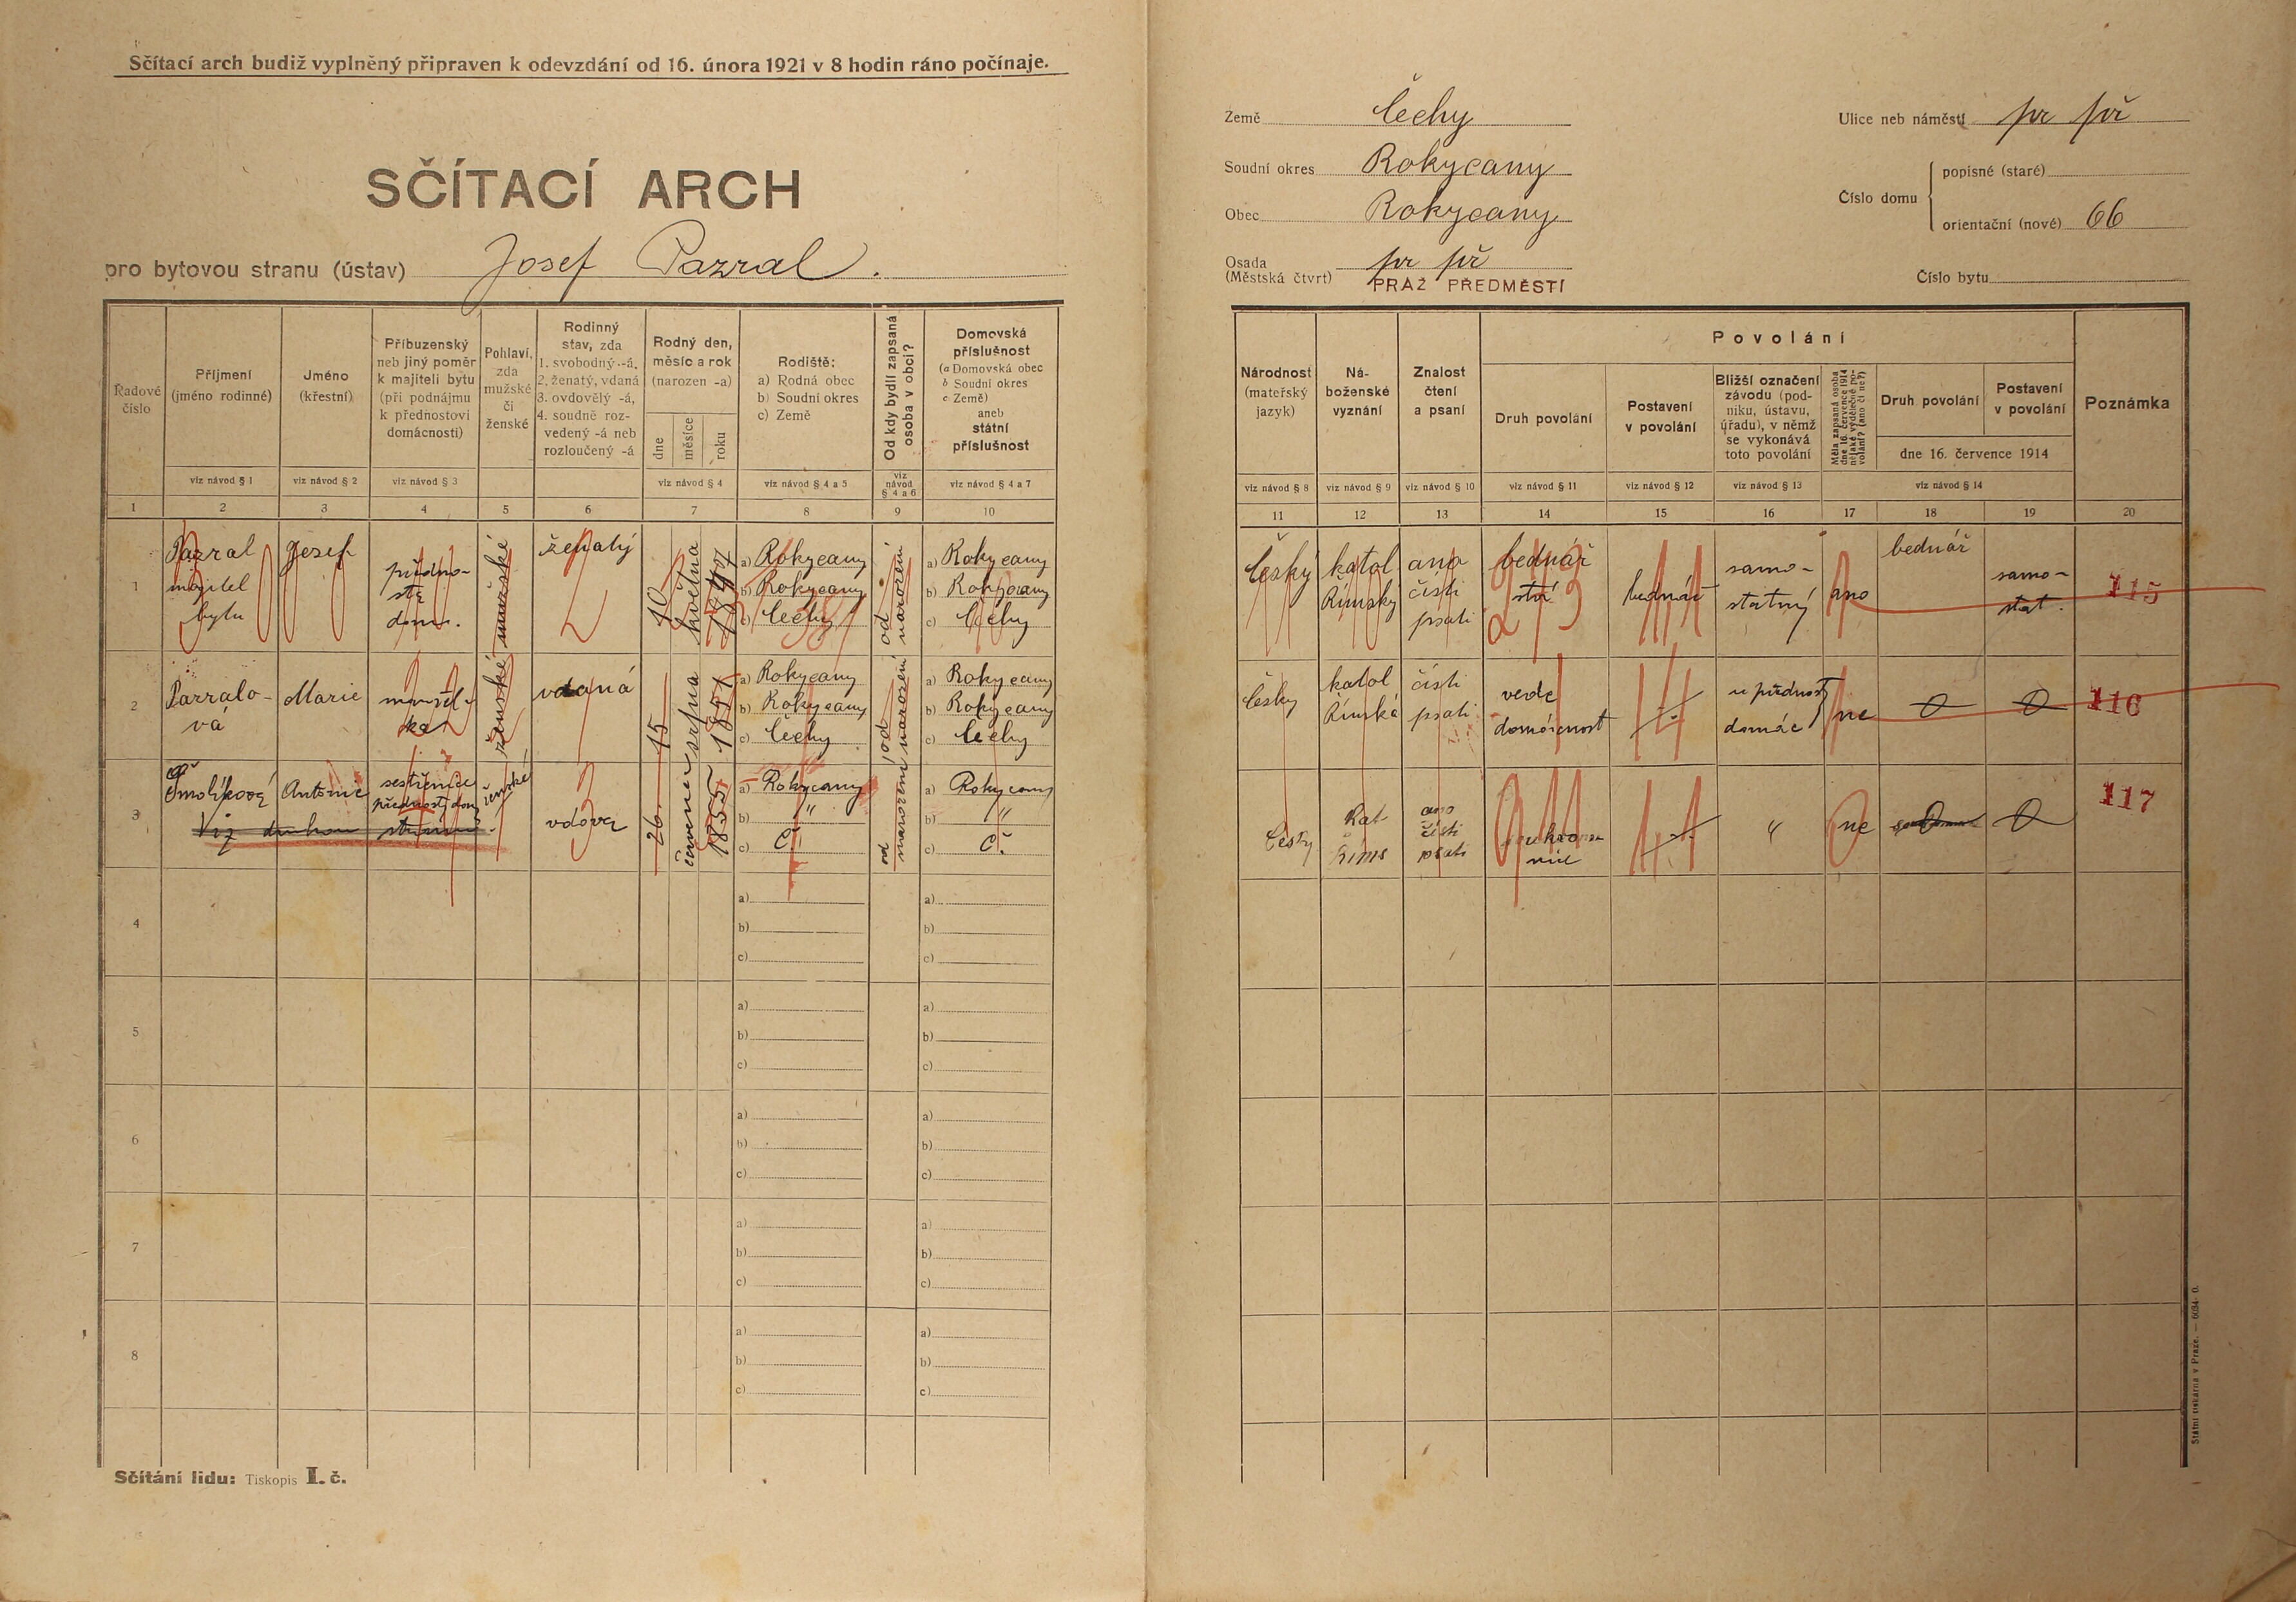 Sčítací arch budiž vyplněný připraven k odevzdání od 16. února 1921 v 8 hodin ráno počínaje.
SČÍTACÍ ARCH
pro bytovou stranu (ústav) Josef Pazral.
Země Čechy
Soudní okres Rokycany
Obec Rokycany
Osada (Městská čtvrt) pr př
PRAŽ PŘEDMĚSTÍ
Ulice neb náměstí pr př
Číslo domu
popisné (staré)
orientační (nové) 66
Číslo bytu
Řadové číslo
Příjmení (jméno rodinné)
Jméno (křestní)
Příbuzenský neb jiný poměr k majiteli bytu (při podnájmu k přednostovi domácnosti)
Pohlaví, zda mužské či ženské
Rodinný stav, zda 1. svobodný -á, 2. ženatý, vdaná 3. ovdovělý -á, 4. soudně rozvedený -á neb rozloučený -á
Rodný den, měsíc a rok (narozen -a)
dne měsíce roku
Rodiště: a) Rodná obec b) Soudní okres c) Země
Od kdy bydlí zapsaná osoba v obci?
Domovská příslušnost (a Domovská obec b Soudní okres c Země) aneb státní příslušnost
viz návod § 1 viz návod § 2 viz návod § 3 viz návod § 4 viz návod § 4 a 5 viz návod § 4 a 6 viz návod § 4 a 7
1 2 3 4 5 6 7 8 9 10
Národnost (mateřský jazyk)
Náboženské vyznání
Znalost čtení a psaní
Povolání
Druh povolání
Postavení v povolání
Bližší označení závodu (podniku, ústavu, úřadu), v němž se vykonává toto povolání
Měla zapsaná osoba dne 16. července 1914 nějaké výdělečné povolání? (ano či ne?)
Druh povolání
Postavení v povolání
dne 16. července 1914
Poznámka
viz návod § 8 viz návod § 9 viz návod § 10 viz návod § 11 viz návod § 12 viz návod § 13 viz návod § 14
11 12 13 14 15 16 17 18 19 20
1
Pazral
majitel
bytu
Josef
předno-
sta
dom.
mužské
ženatý
2
10
května
a) Rokycany
b) Rokycany
c) Čechy
od narození
a) Rokycany
b) Rokycany
c) Čechy
český
katol
Římský
ano
čísti
psati
bednář
ství
bednář
samo-
statný
ano
bednář
samo-
stat.
115
2
Pazralo-
vá
Marie
manžel-
ka
ženské
vdaná
15
srpna
1851
a) Rokycany
b) Rokycany
c) Čechy
od narození
a) Rokycany
b) Rokycany
c) Čechy
česky
katol
Římská
čísti
psati
vede
domácnost
u přednosty
domác
ne
0
0
116
3
Antonie
sestřenice
přednosty dom
Viz druhou stranu
ženské
vdova
3
26
července
1855
a) Rokycany
b) "
c) Č.
od narození
a) Rokycany
b) "
c) Č.
česky
Kat
řims
ano
čísti
psati
"
ne
0
0
117
4
a) b) c)
a) b) c)
5
a) b) c)
a) b) c)
6
a) b) c)
a) b) c)
7
a) b) c)
a) b) c)
8
a) b) c)
a) b) c)
Sčítání lidu: Tiskopis I. č.
Státní tiskárna v Praze. — 6034-0.